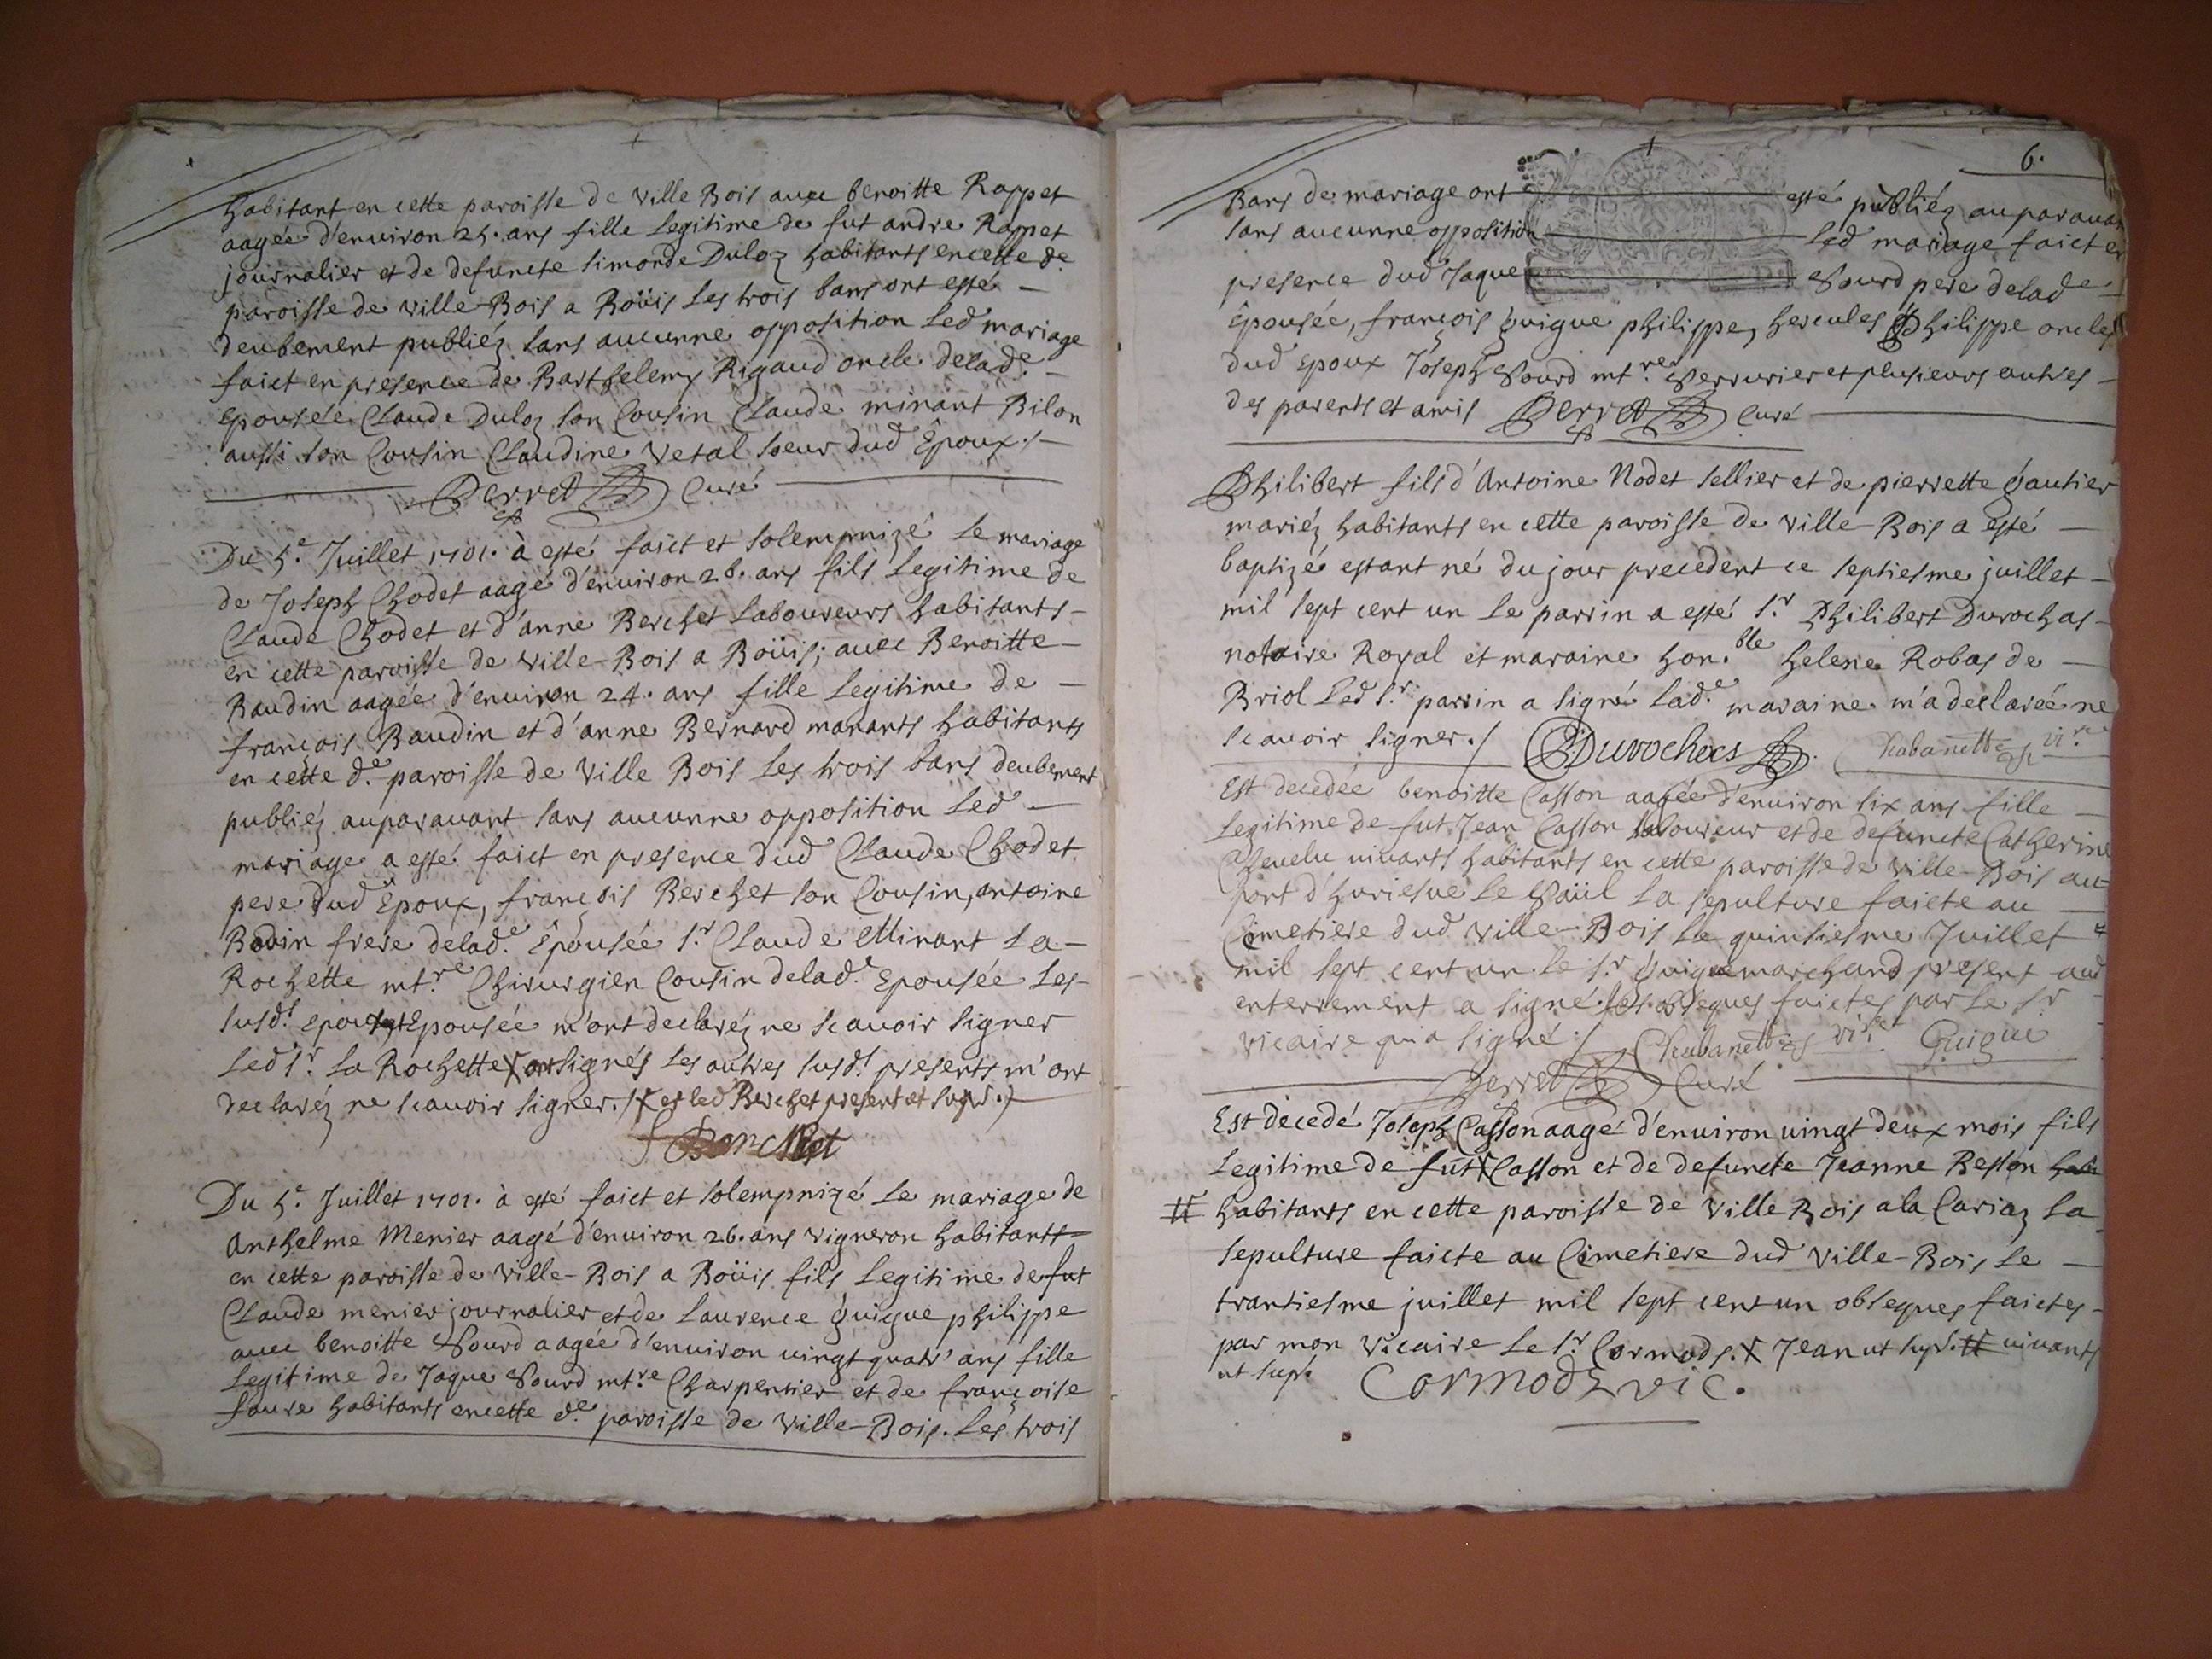 habitant en cette paroisse de ville Bois avec benoitte Rappet
aagée d'environ 25. ans fille legitime de fut andre Rappet
journalier et de defuncte simonde Duloz habitants en cette de
paroisse de ville-Bois a Boüis les trois bans ont esté —
deubement publiéz sans aucunne opposition led mariage
faict en presence de Barthelemy Rigaud oncle delade —
epousée Claude Duloz son Cousin Claude minant Bilon
aussi son Cousin Claudine Vetal soeur dud Époux. /—
Perret Curé
Du 5e Juillet 1701. à esté faict et solempnizé le mariage
de Joseph Chodet aagé d'environ 28. ans fils legitime de
Claude Chodet et d'anne Berchet laboureurs habitants -
en cette paroisse de ville-Bois a Boüis; avec Benoitte -
Baudin aagée d'environ 24. ans fille legitime de —
françois Baudin et d'anne Bernard manants habitants
en cette de paroisse de ville Bois les trois bans deubement
publiéz auparavant sans aucunne opposition led —
mariage a esté faict en presence dud Claude Chodet
pere dud Époux, françois Berchet son Cousin, antoine
Bodin frere delade Épousée sr Claude Minant la -
Rochette mtre Chirurgien Cousin delade Epousée les -
susds epoux et Epousée m'ont declaréz ne scavoir signer
led sr la Rochette X ont signés les autres susds presents m'ont
declaréz ne scavoir signer. / X et led Berchet present ut supr. /
Du 5e Juillet 1701. à esté faict et solempnizé le mariage de
Anthelme Menier aagé d'environ 26. ans vigneron habitants
en cette paroisse de ville-Bois a Boüis fils legitime de fut
Claude menier journalier et de laurence guigue philippe
avec benoitte Sourd aagée d'environ vingt quatr' ans fille
legitime de Jaque Sourd mtre Charpentier et de françoise
faure habitants en cette de paroisse de ville-Bois. les trois
6.
Bans de mariage ont — esté publiéz auparavant
sans aucunne opposition — led mariage faict en
presence dud Jaque — Sourd pere delade —
Épousée, françois guigue philippe, hercules philippe oncles
dud epoux Joseph Sourd mtre Serrurier et plusieurs autres -
des parents et amis Perret Curé
Philibert fils d'Antoine Nodet sellier et de pierrette gautier
mariéz habitants en cette paroisse de ville-Bois a esté —
baptizé estant né du jour precedent ce septiesme juillet -
mil sept cent un le parrin a esté sr Philibert Durochas -
notaire Royal et maraine hon.ble helene Robas de —
Briol led sr parrin a signé lade maraine m'a declarée ne
scavoir signer. / Durochas Chabanettes vire
Est decedée benoitte Casson aagée d'environ six ans fille —
legitime de fut Jean Casson laboureur et de defuncte Catherine
Chevelu vivants habitants en cette paroisse de ville-Bois au
la sepulture faicte au —
Cimetiere dud ville-Bois le quinsiesme Juillet
mil sept cent un. le sr guigue marchand present aud
enterrement a signé. les obseques faictes par le sr -
vicaire qui a signé. / Chabanettes vire Guigue
Perret Curé
Est decedé Joseph Casson aagé d'environ vingt deux mois fils
legitime de fut X Casson et de defuncte Jeanne Besson
# habitants en cette paroisse de ville Bois a la Cariaz la
sepulture faicte au Cimetiere dud ville-Bois le —
trantiesme juillet mil sept cent un obseques faictes -
par mon vicaire le sr Cormods. X Jean ut supr. # vivants
ut supr. Cormodz vic.